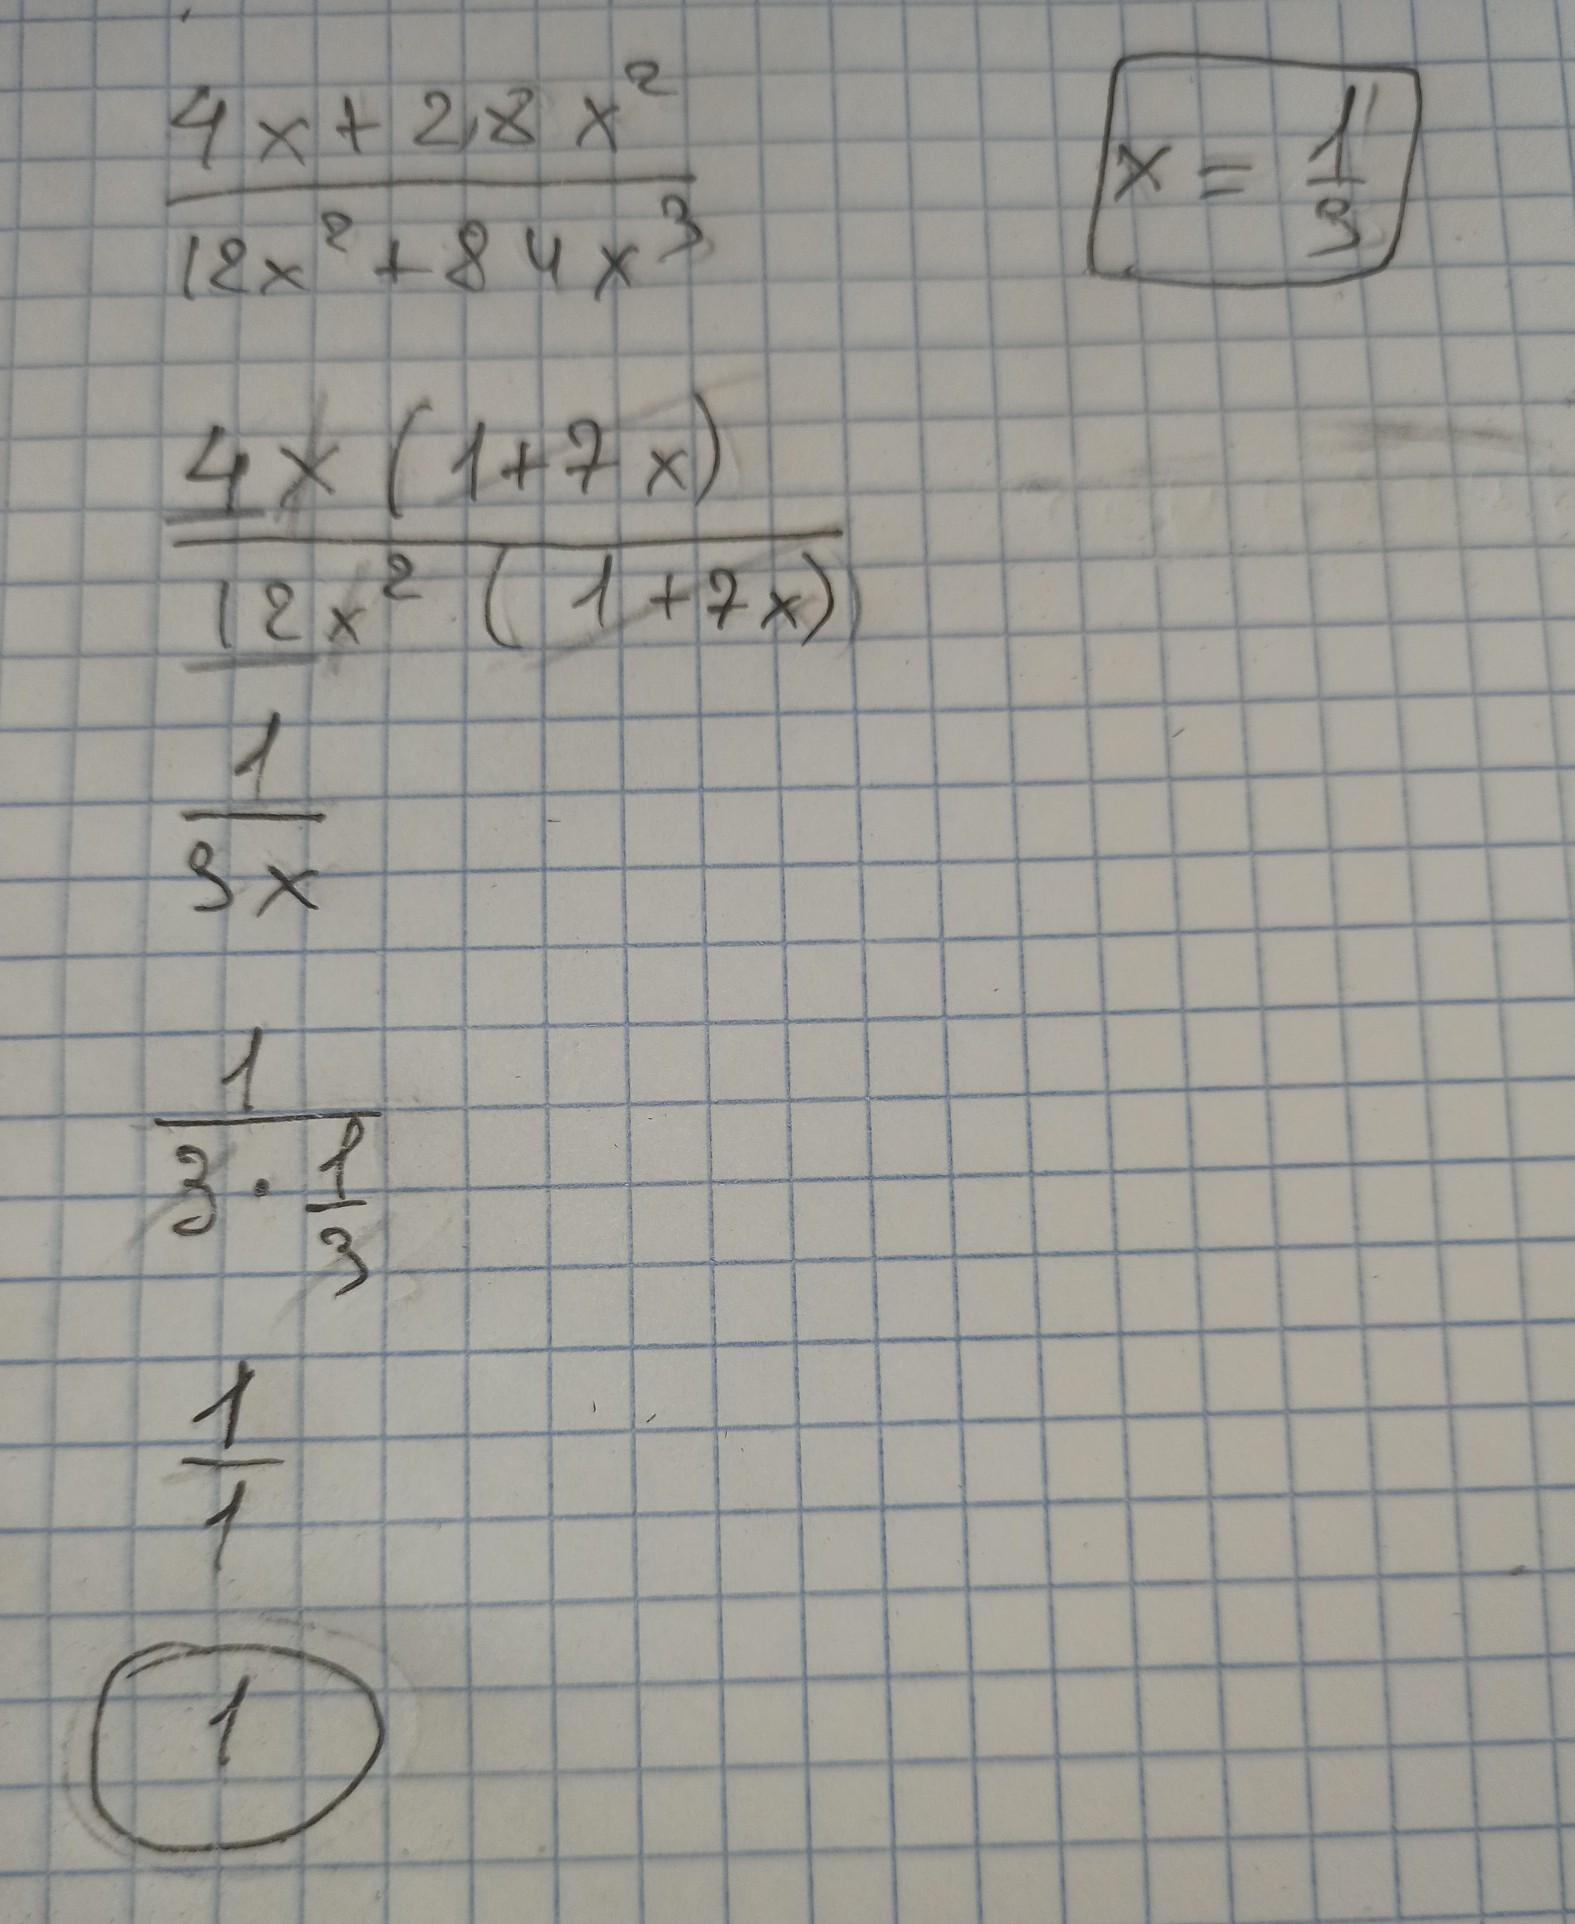 4x + 28x²
12x² + 84x³
x = 1/3
4x (1+7x)
12x² (1+7x)
1
3x
1
3 · 1/3
1
1
1